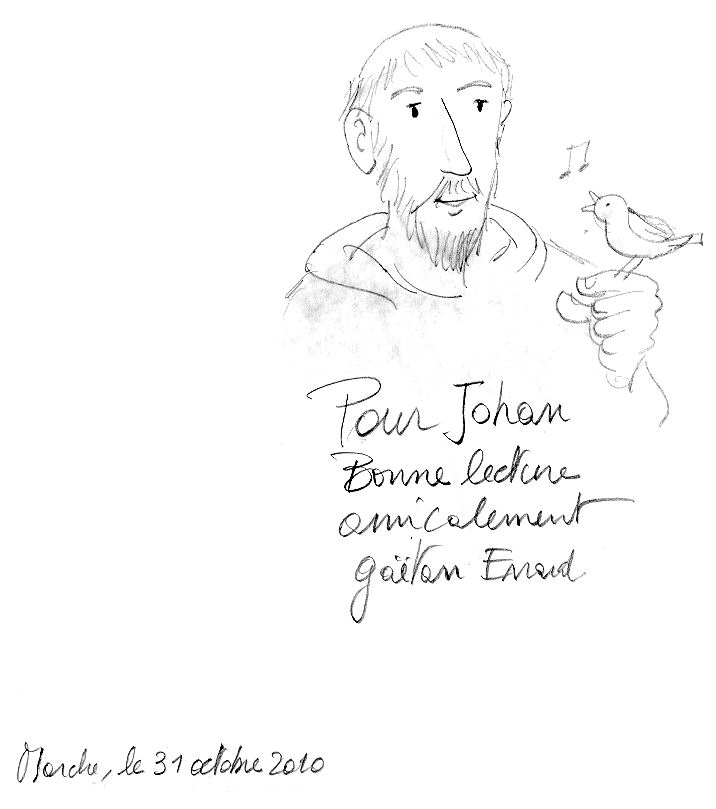 Pour Johan
Bonne lecture
amicalement
gaëtan Evrard
Marche, le 31 octobre 2010